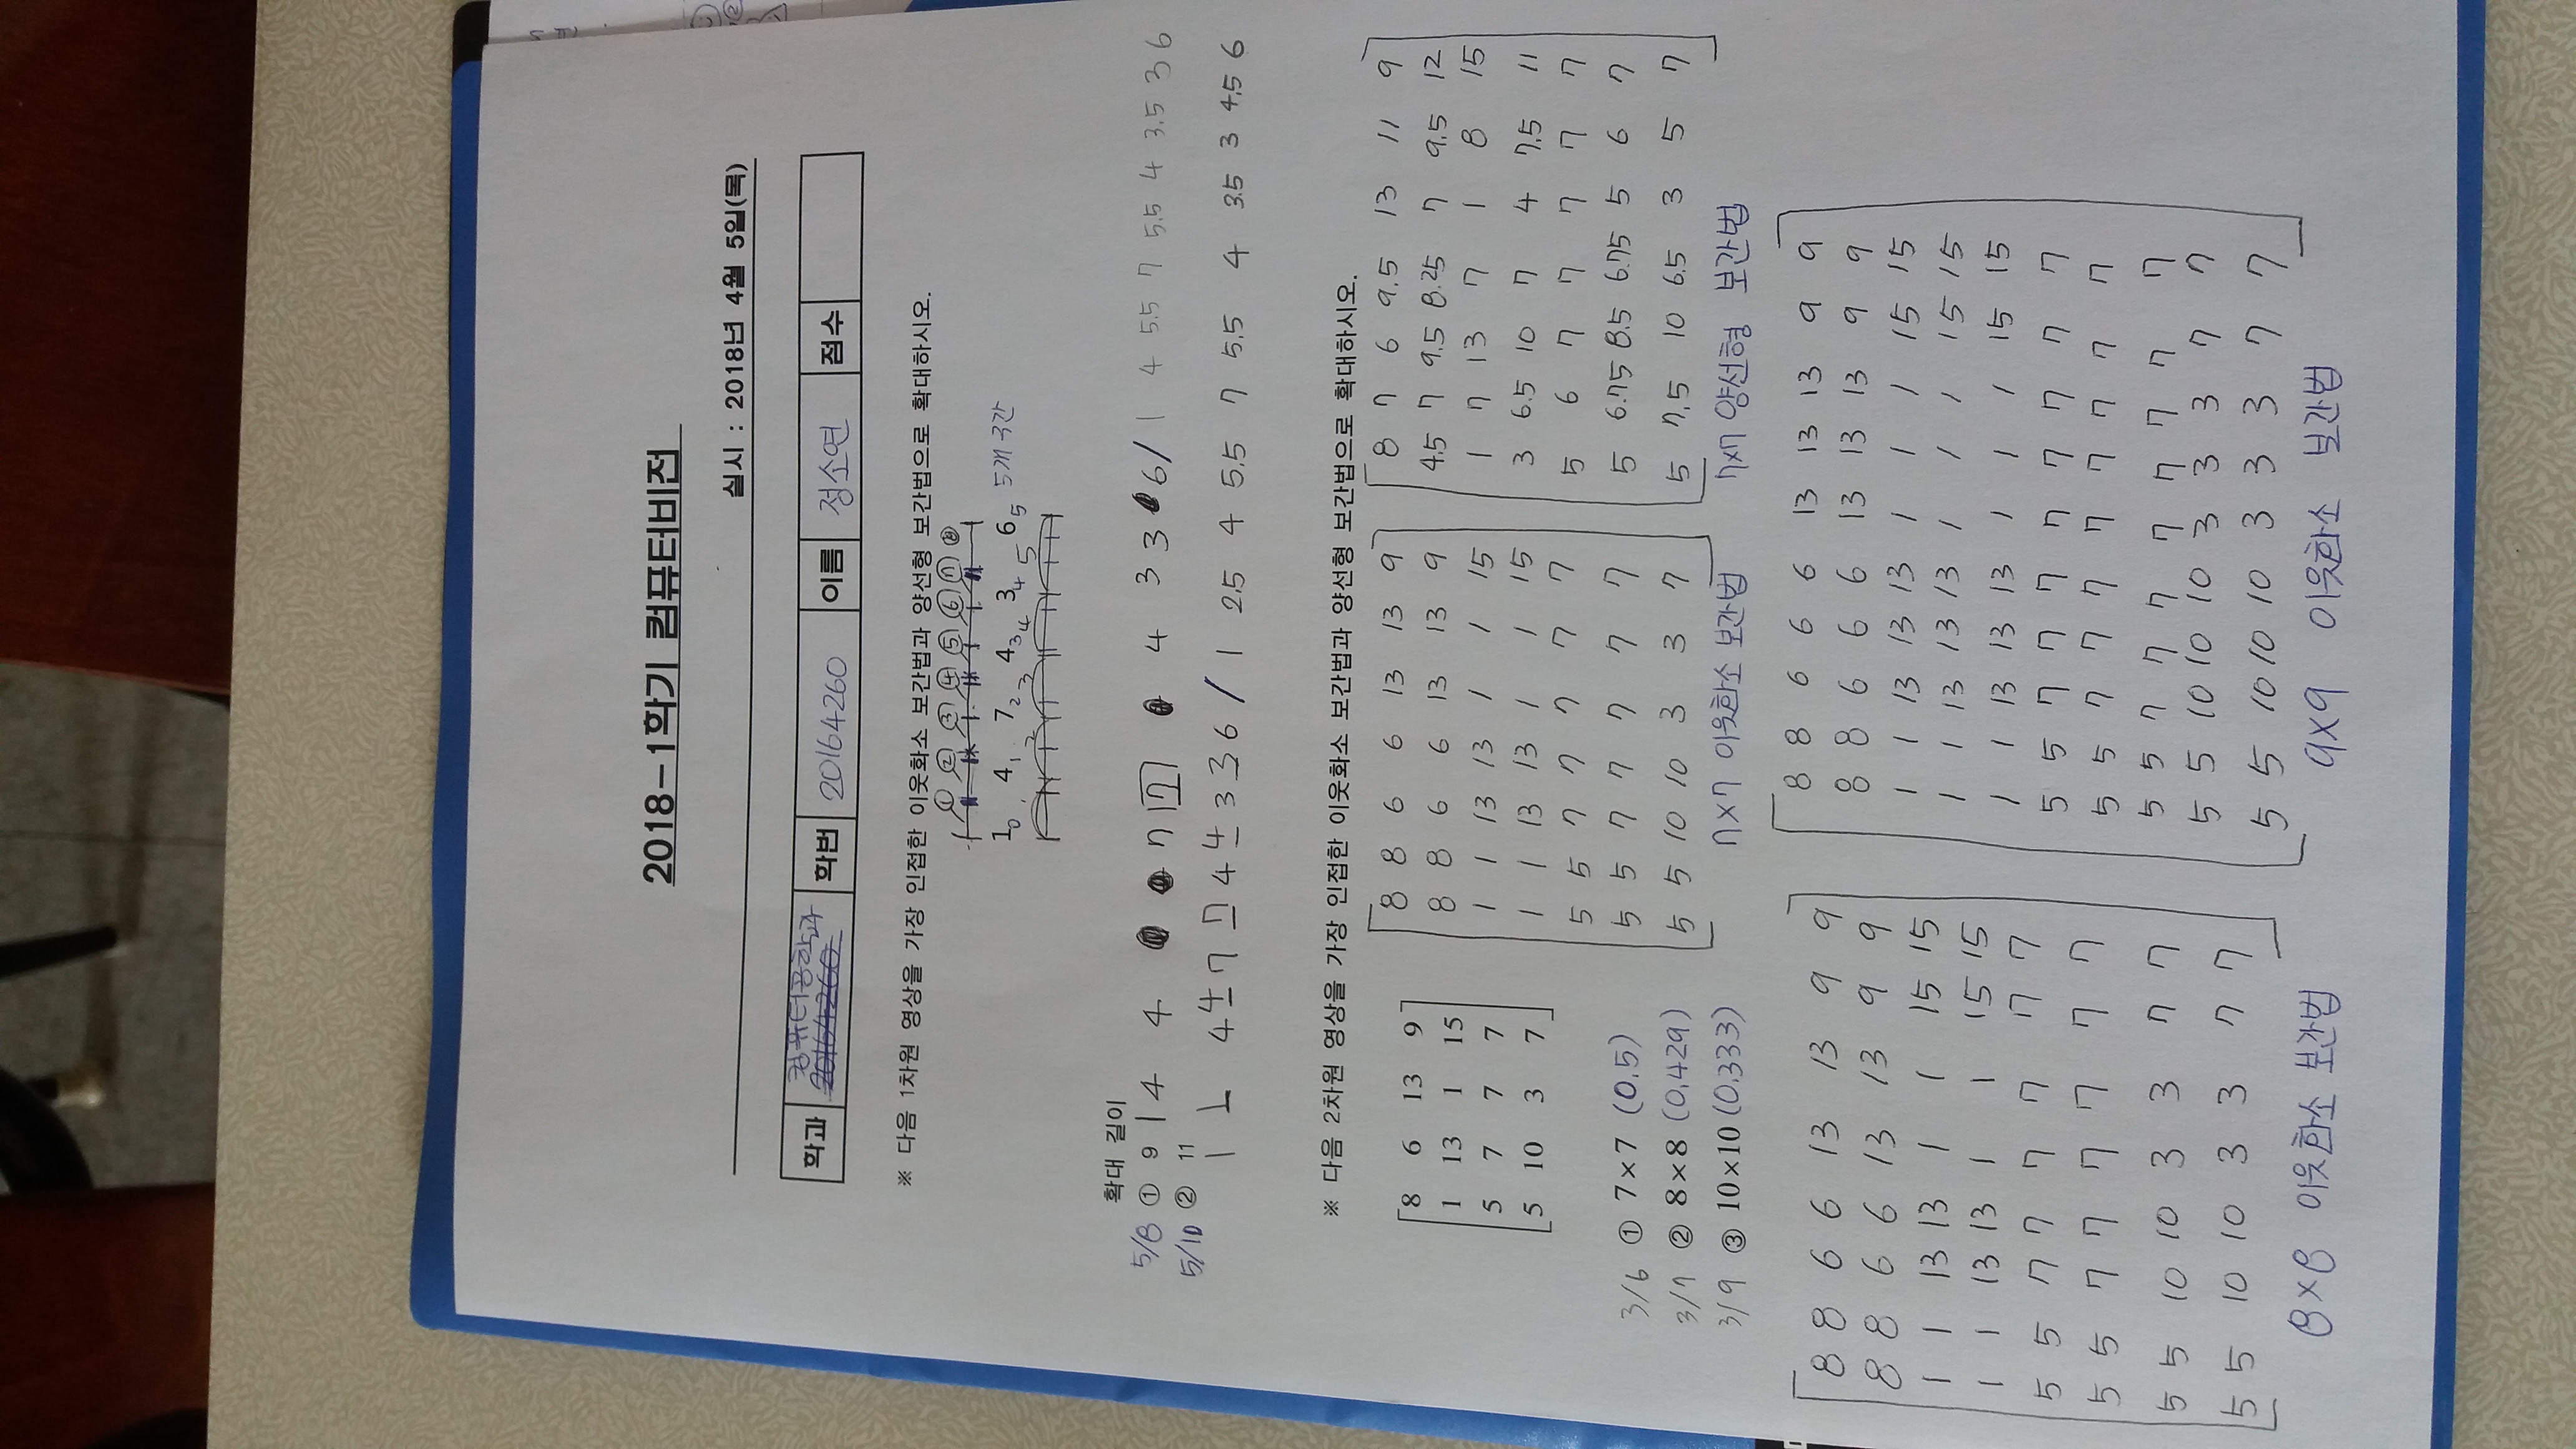 2018-1학기 컴퓨터비전
실시 : 2018년 4월 5일(목)
학과 컴퓨터공학과 학번 20164260 이름 정소연 점수
※ 다음 1차원 영상을 가장 인접한 이웃화소 보간법과 양선형 보간법으로 확대하시오.
① ② ③ ④ ⑤ ⑥ ⑦ ⑧
1₀, 4₁, 7₂ ₃ 4₃ ₄ 3₄ ₅ 6₅ 5개 구간
확대 길이
5/8 ① 9 1 4 4 7 7 4 3 3 6 / 1 4 5.5 7 5.5 4 3.5 3 6
5/10 ② 11 1 1 4 4 7 7 4 4 3 3 6 / 1 2.5 4 5.5 7 5.5 4 3.5 3 4.5 6
※ 다음 2차원 영상을 가장 인접한 이웃화소 보간법과 양선형 보간법으로 확대하시오.
8 6 13 9
1 13 1 15
5 7 7 7
5 10 3 7
3/6 ① 7×7 (0.5)
3/7 ② 8×8 (0.429)
3/9 ③ 10×10 (0.333)
8 8 6 6 13 13 9
8 8 6 6 13 13 9
1 1 13 13 1 1 15
1 1 13 13 1 1 15
5 5 7 7 7 7 7
5 5 7 7 7 7 7
5 5 10 10 3 3 7
7×7 이웃화소 보간법
8 7 6 9.5 13 11 9
4.5 7 9.5 8.25 7 9.5 12
1 7 13 7 1 8 15
3 6.5 10 7 4 7.5 11
5 6 7 7 7 7 7
5 6.75 8.5 6.75 5 6 7
5 7.5 10 6.5 3 5 7
7×7 양선형 보간법
8 8 6 6 13 13 9 9
8 8 6 6 13 13 9 9
1 1 13 13 1 1 15 15
1 1 13 13 1 1 15 15
5 5 7 7 7 7 7 7
5 5 7 7 7 7 7 7
5 5 10 10 3 3 7 7
5 5 10 10 3 3 7 7
8×8 이웃화소 보간법
8 8 6 6 6 13 13 13 9 9
8 8 6 6 6 13 13 13 9 9
1 1 13 13 13 1 1 1 15 15
1 1 13 13 13 1 1 1 15 15
1 1 13 13 13 1 1 1 15 15
5 5 7 7 7 7 7 7 7 7
5 5 7 7 7 7 7 7 7 7
5 5 7 7 7 7 7 7 7 7
5 5 10 10 10 3 3 3 7 7
5 5 10 10 10 3 3 3 7 7
9×9 이웃화소 보간법